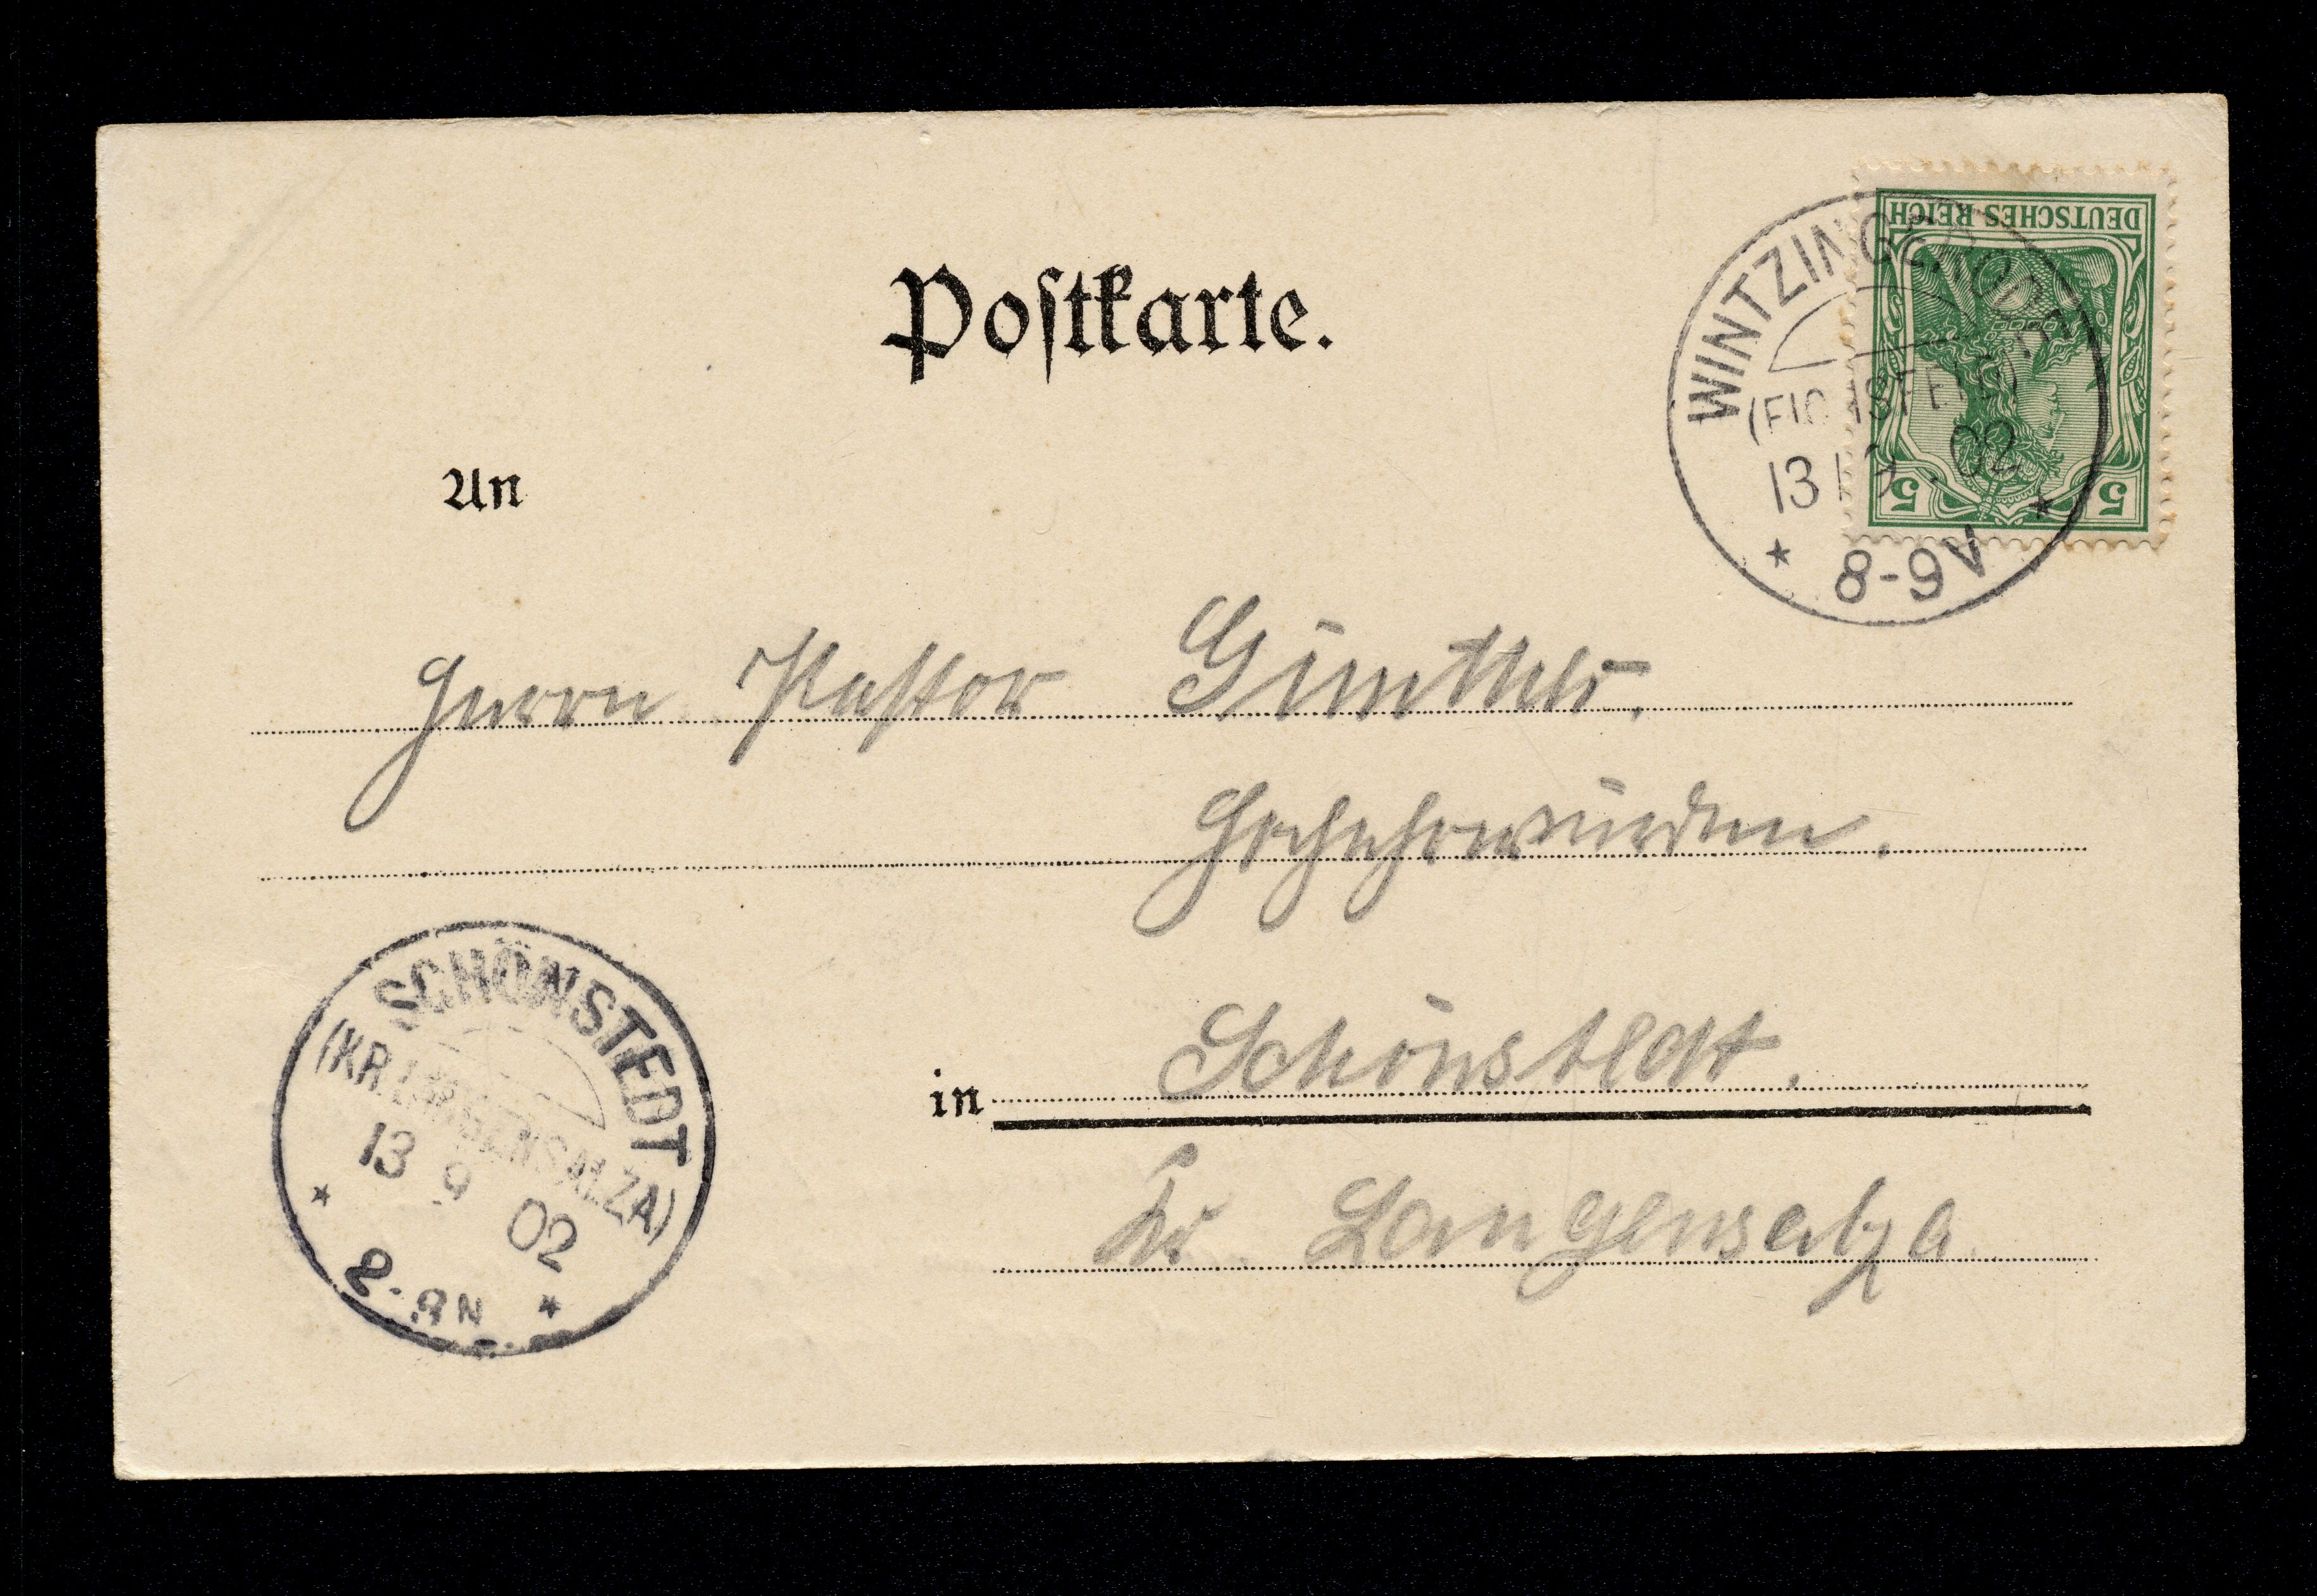 Postkarte.
DEUTSCHES REICH
5 5
WINTZINGERODE
(EICHSFELD)
13 9 02
8-9V
An
Herrn Pastor Günther.
Hochehrwürden.
SCHÖNSTEDT
(KR. LANGENSALZA)
13 9 02
in Schönstedt.
Kr. Langensalza